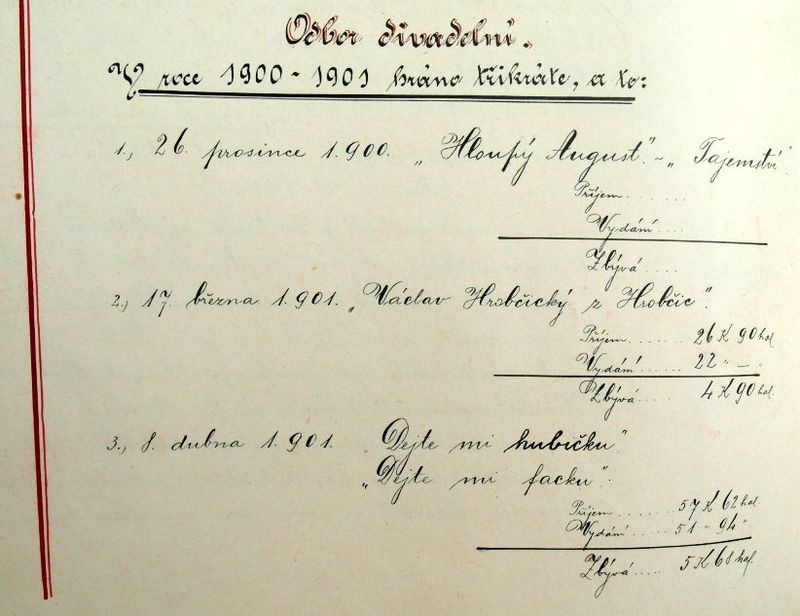 Odbor divadelní.
V roce 1900-1901 hráno třikráte, a to:
1., 26. prosince 1.900. „Hloupý August". - „Tajemství".
Příjem.......
Vydání....
Zbývá....
2., 17. března 1.901. „Václav Hrobčický z Hrobčic".
Příjem....... 26 K 90 hal.
Vydání....... 22 " — "
Zbývá..... 4 K 90 hal.
3., 8. dubna 1.901. „Dejte mi hubičku"
„Dejte mi facku".
Příjem....... 57 K 62 hal.
Vydání...... 51 " 94 "
Zbývá..... 5 K 68 hal.